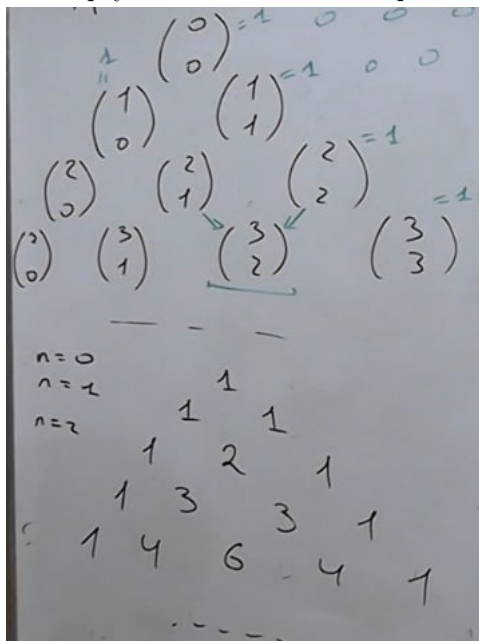 (0 0) = 1 0 0 0
1 = (1 0) (1 1) = 1 0 0
(2 0) (2 1) (2 2) = 1
(3 0) (3 1) (3 2) (3 3) = 1
n = 0
n = 1
n = 2
1
1 1
1 2 1
1 3 3 1
1 4 6 4 1